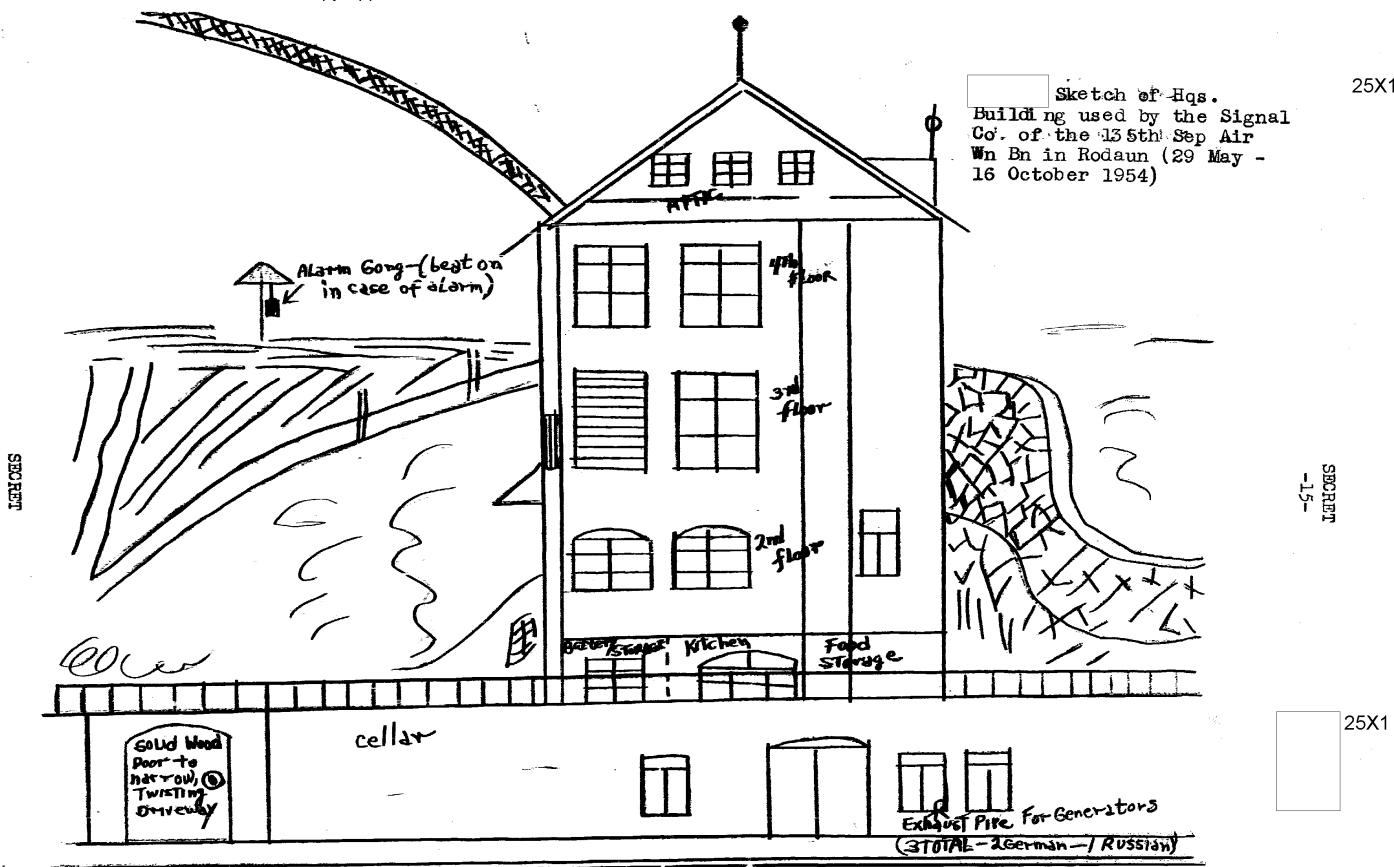 25X1
Sketch of Hqs.
Building used by the Signal
Co. of the 135th Sep Air
Wn Bn in Rodaun (29 May -
16 October 1954)
Attic
Alarm Gong-(beat on
in case of alarm)
4th
floor
3rd
floor
2nd
floor
SECRET
SECRET
-15-
Battery Storage
Kitchen
Food
Storage
cellar
Solid Wood
Door to
narrow,
Twisting
Driveway
25X1
Exhaust Pipe For Generators
(3 TOTAL - 2 German - 1 Russian)